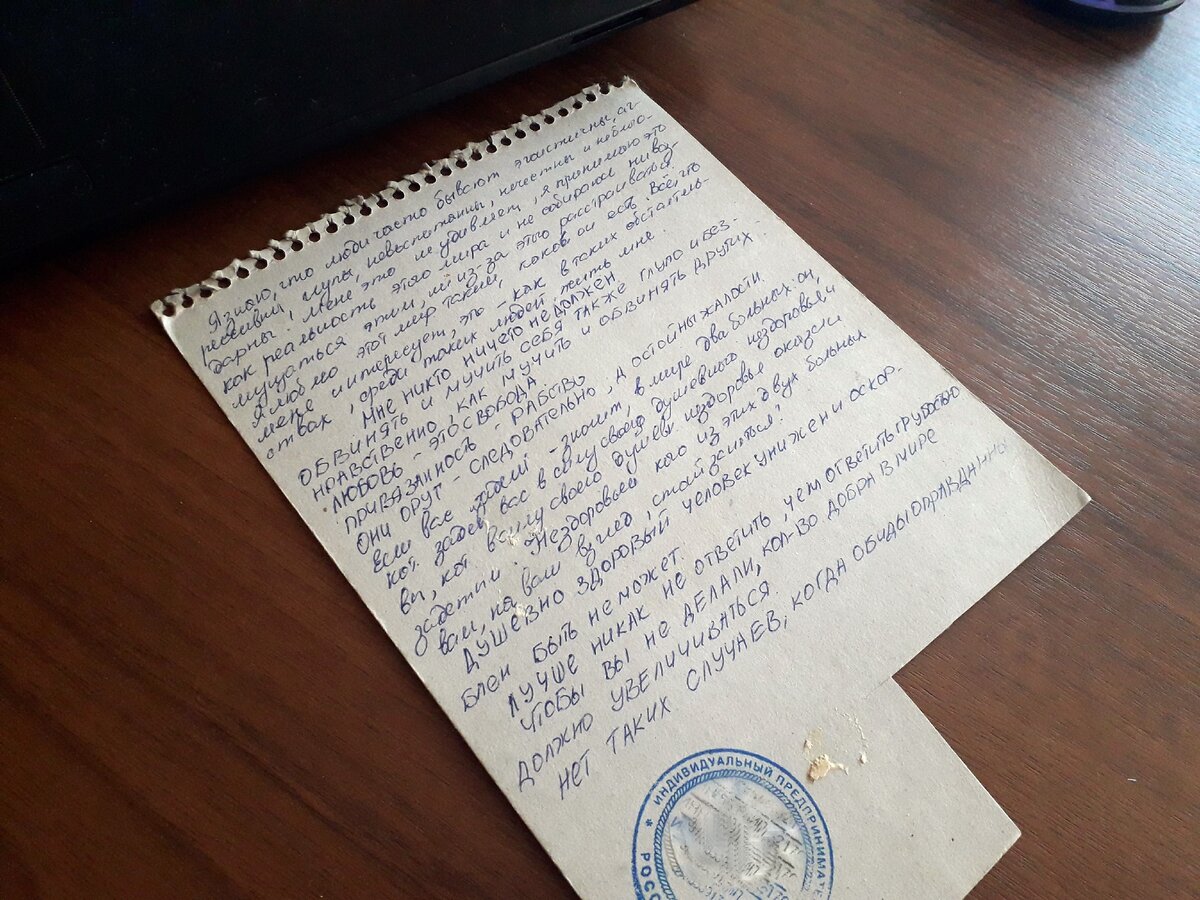 Я знаю, что люди часто бывают эгоистичны, аг-
рессивны, глупы, невоспитанны, нечестны и неблаго-
дарны. Меня это не удивляет, я принимаю это
как реальность этого мира и не собираюсь ни воз-
мущаться этим, ни из-за этого расстраиваться.
Я люблю этот мир таким, какой он есть. Всё, что
меня интересует, это - как в таких обстоятель-
ствах, среди таких людей жить мне.
Мне никто ничего не должен.
ОБВИНЯТЬ И МУЧИТЬ СЕБЯ ТАКЖЕ ГЛУПО И БЕЗ-
НРАВСТВЕННО, КАК МУЧИТЬ И ОБВИНЯТЬ ДРУГИХ.
ЛЮБОВЬ - ЭТО СВОБОДА
ПРИВЯЗАННОСТЬ - РАБСТВО
ОНИ ОРУТ - СЛЕДОВАТЕЛЬНО, ДОСТОЙНЫ ЖАЛОСТИ
Если вас задели - значит, в мире два больных: он,
кот. задел вас в силу своего душевного нездоровья, и
вы, кот. в силу своего душевн. нездоровья оказались
задетым. Нездоровьем кого из этих двух больных
вам, на ваш взгляд, стоит заняться?
ДУШЕВНО ЗДОРОВЫЙ ЧЕЛОВЕК УНИЖЕН И ОСКОР-
БЛЕН БЫТЬ НЕ МОЖЕТ.
ЛУЧШЕ НИКАК НЕ ОТВЕТИТЬ, ЧЕМ ОТВЕТИТЬ ГРУБОСТЬЮ
ЧТОБЫ ВЫ НЕ ДЕЛАЛИ, КОЛ-ВО ДОБРА В МИРЕ
ДОЛЖНО УВЕЛИЧИВАТЬСЯ.
НЕТ ТАКИХ СЛУЧАЕВ, КОГДА ОБИДЫ ОПРАВДАННЫ
* ИНДИВИДУАЛЬНЫЙ ПРЕДПРИНИМАТЕ
РОСС